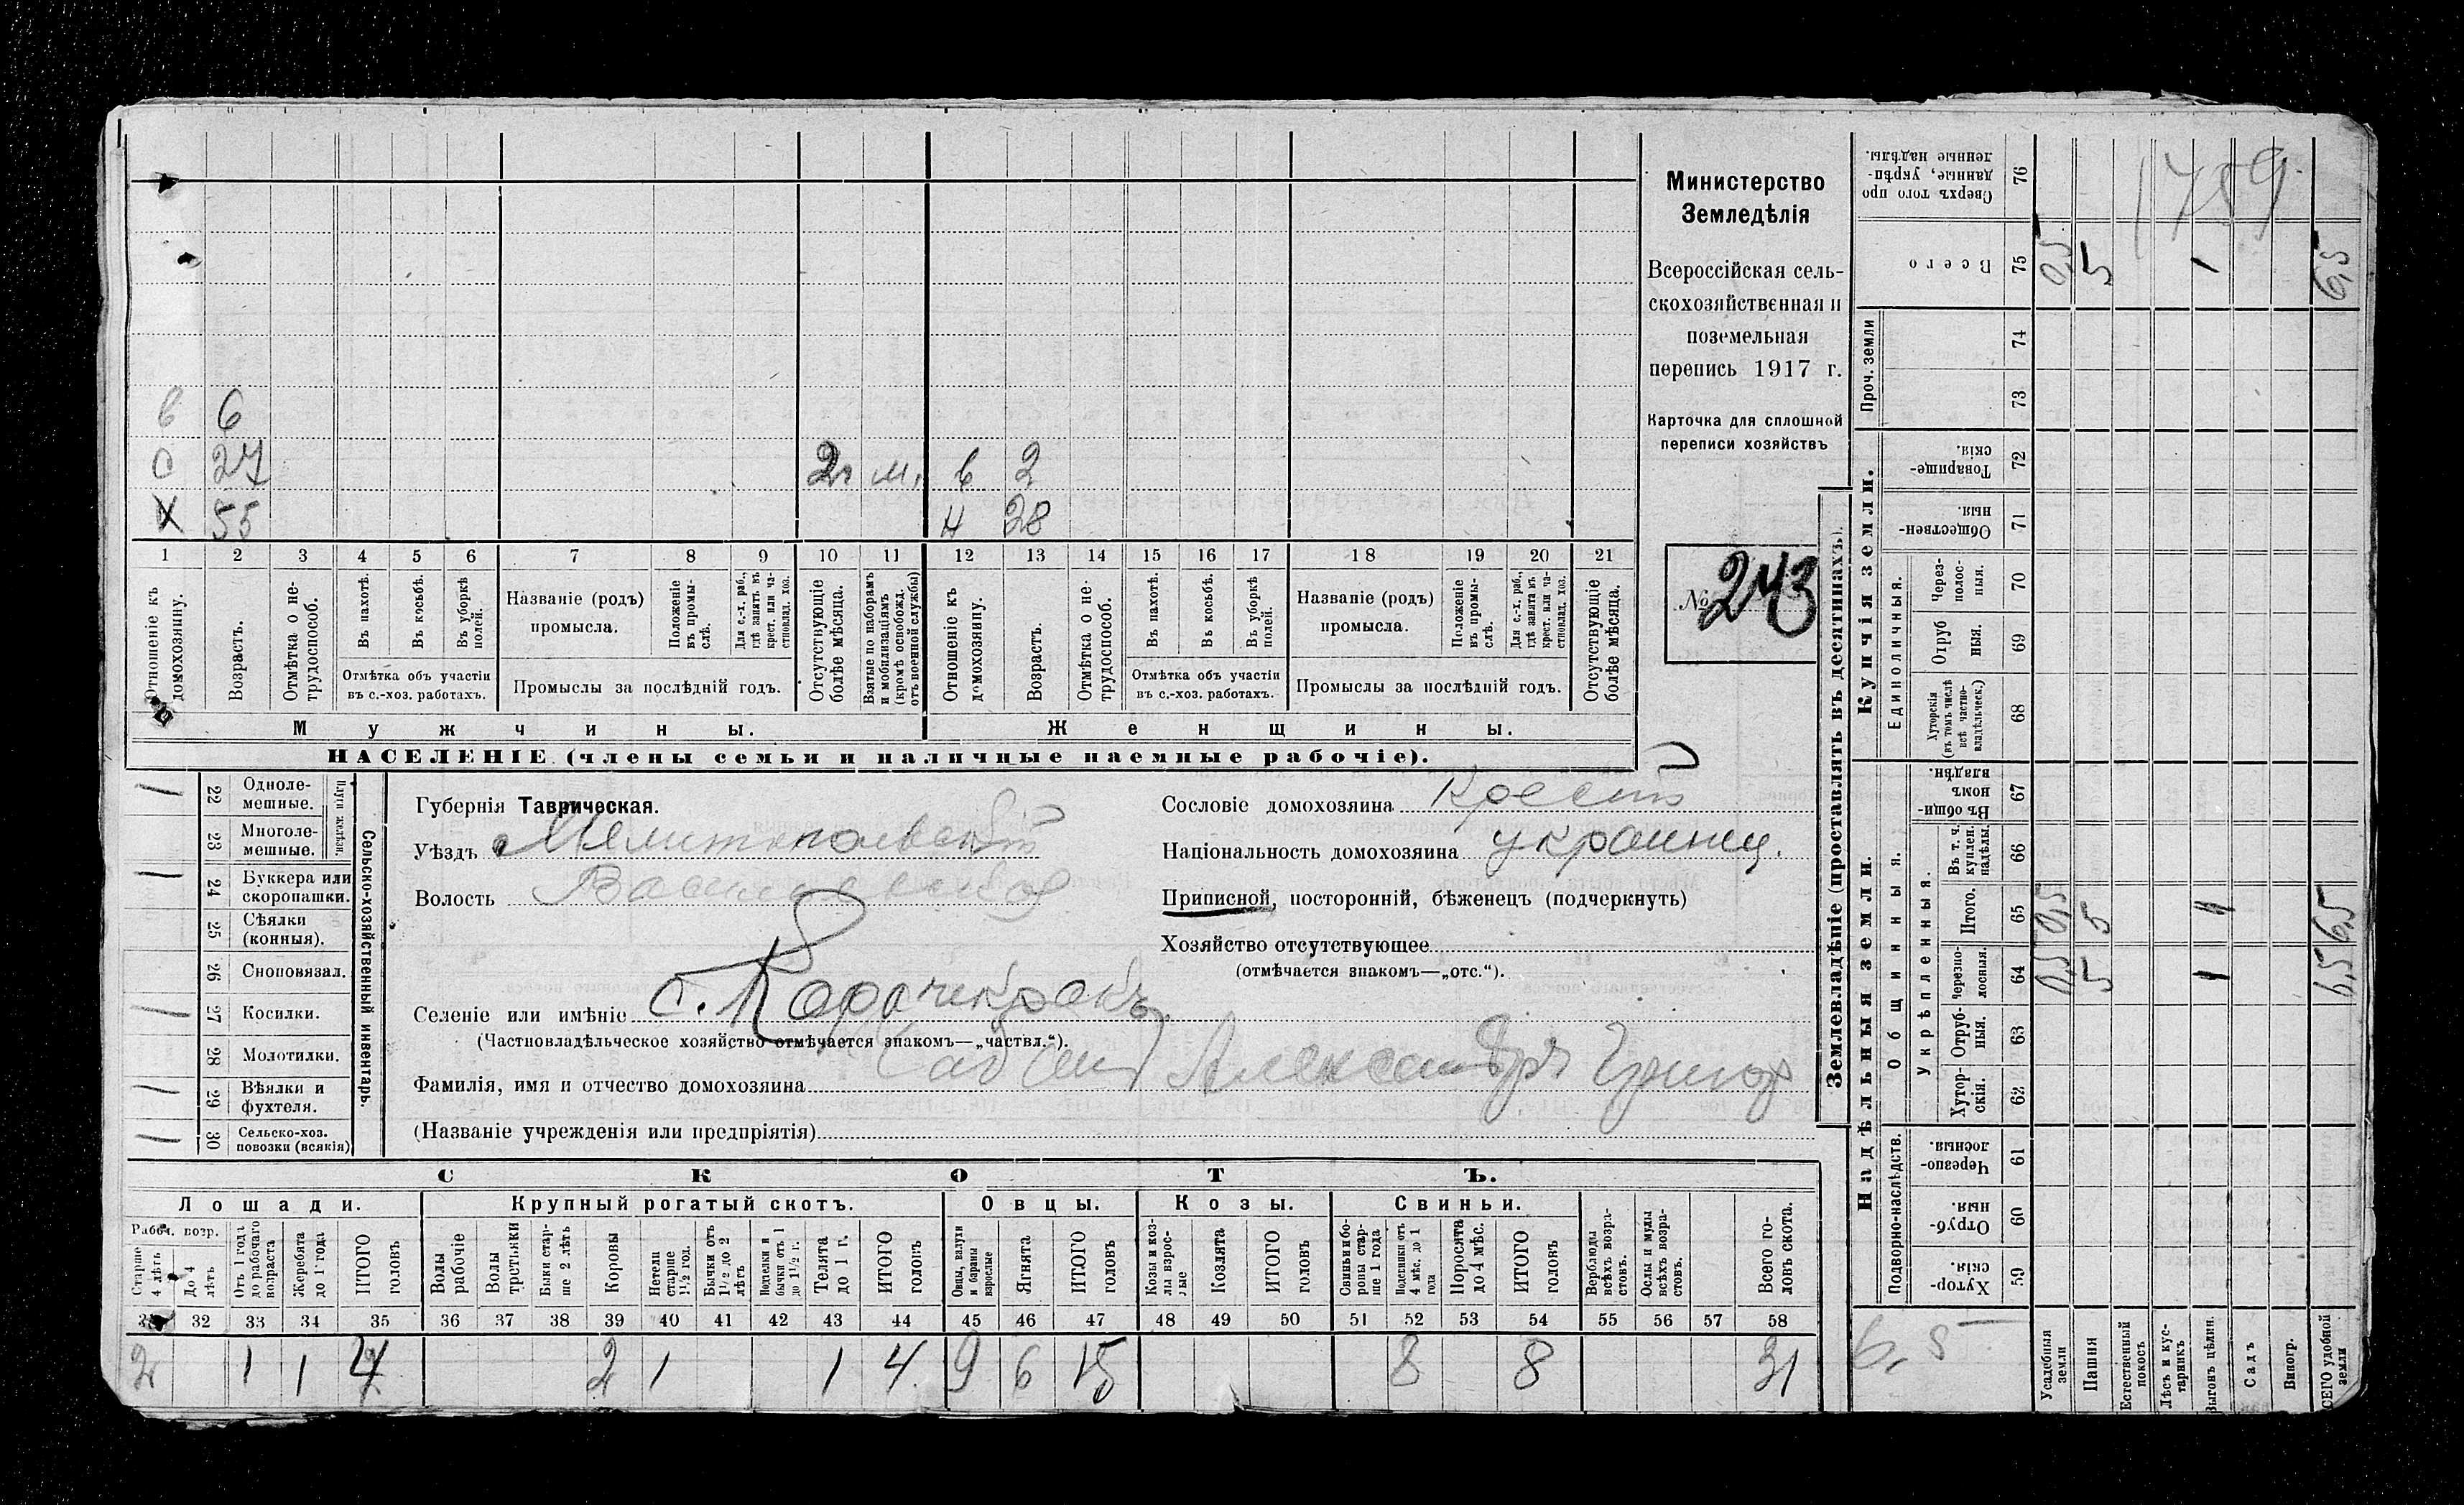 Министерство
Земледѣлія
Всероссійская сель-
скохозяйственная и
поземельная
перепись 1917 г.
Карточка для сплошной
переписи хозяйствъ
№ 243
в 6
с 27 2 м. в 2
х 55 н 28
1 2 3 4 5 6 7 8 9 10 11 12 13 14 15 16 17 18 19 20 21
Отношеніе къ домохозяину.
Возрастъ.
Отмѣтка о не-трудоспособ.
Въ пахотѣ.
Въ косьбѣ.
Въ уборкѣ полей.
Отмѣтка объ участіи
въ с.-хоз. работахъ.
Названіе (родъ)
промысла.
Положеніе въ промы-слѣ.
Для с.-х. раб., гдѣ занятъ въ крест. или ча-стновлад. хоз.
Промыслы за послѣдній годъ.
Отсутствующіе болѣе мѣсяца.
Взятые по наборамъ и мобилизаціямъ (кромѣ освобожд. отъ военной службы)
Отношеніе къ домохозяину.
Возрастъ.
Отмѣтка о не-трудоспособ.
Въ пахотѣ.
Въ косьбѣ.
Въ уборкѣ полей.
Отмѣтка объ участіи
въ с.-хоз. работахъ.
Названіе (родъ)
промысла.
Положеніе въ промы-слѣ.
Для с.-х. раб., гдѣ занята въ крест. или ча-стновлад. хоз.
Промыслы за послѣдній годъ.
Отсутствующіе болѣе мѣсяца.
Мужчины. Женщины.
НАСЕЛЕНІЕ (члены семьи и наличные наемные рабочіе).
Сельско-хозяйственный инвентарь.
22 Одноле-мешные.
23 Многоле-мешные.
24 Буккера или скоропашки.
25 Сѣялки (конныя).
26 Сноповязал.
27 Косилки.
28 Молотилки.
29 Вѣялки и фухтеля.
30 Сельско-хоз. повозки (всякія)
Губернія Таврическая.
Уѣздъ Мелитопольскій
Волость Васильевская
Селеніе или имѣніе с. Карачекракъ
(Частновладѣльческое хозяйство отмѣчается знакомъ—„частвл.“).
Фамилія, имя и отчество домохозяина Александръ Григор
(Названіе учрежденія или предпріятія)
Сословіе домохозяина Крест
Національность домохозяина украинец.
Приписной, посторонній, бѣженецъ (подчеркнуть)
Хозяйство отсутствующее
(отмѣчается знакомъ—„отс.“).
СКОТЪ.
Лошади. Крупный рогатый скотъ. Овцы. Козы. Свиньи.
Рабоч. возр.
Старше 4 лѣтъ
До 4 лѣтъ
Отъ 1 года до рабочаго возраста
Жеребята до 1 года
ИТОГО головъ
Волы рабочіе
Волы третьяки
Быки стар-ше 2 лѣтъ
Коровы
Нетели старше 1½ год.
Бычки отъ 1½ до 2 лѣтъ
Подтелки и бычки отъ 1 до 1½ г.
Телята до 1 г.
ИТОГО головъ
Овцы, валухи и бараны взрослые
Ягнята
ИТОГО головъ
Козы и коз-лы взрос-лые
Козлята
ИТОГО головъ
Свиньи и бо-ровы стар-ше 1 года
Подсвинки отъ 4 мѣс. до 1 года
Поросята до 4 мѣс.
ИТОГО головъ
Верблюды всѣхъ возра-стовъ.
Ослы и мулы всѣхъ возра-стовъ.
Всего го-ловъ скота.
31 32 33 34 35 36 37 38 39 40 41 42 43 44 45 46 47 48 49 50 51 52 53 54 55 56 57 58
2 1 1 4 2 1 1 4 9 6 15 8 8 31
Землевладѣніе (проставлять въ десятинахъ).
Надѣльныя земли. Купчія земли. Проч. земли
Подворно-наслѣдств. Общинныя. Укрѣпленныя. Единоличныя.
Сверхъ того про данные, укрѣп-ленные надѣлы. 76
Всего 75 0,5 5 1 6,5
74
73
Товарище-скія. 72
Обществен-ныя. 71
Через-полос-ныя. 70
Отруб ныя. 69
Хуторскія (въ томъ числѣ всѣ частно-владѣльческ.) 68
Въ общи-номъ владѣн. 67
Въ т. ч. куплен. надѣлы. 66
Итого. 65 0,5 5 1 6,5
Черезпо-лосныя. 64 0,5 5 1 6,5
Отруб-ныя. 63
Хутор-скія. 62
Черезпо-лосныя. 61
Отруб-ныя. 60
Хутор-скія. 59
Усадебныя земли
Пашня
Естественный покосъ
Лѣсъ и кус-тарникъ
Выгонъ цѣлин.
Садъ
Виногр.
ВСЕГО удобной земли
6,5
1759